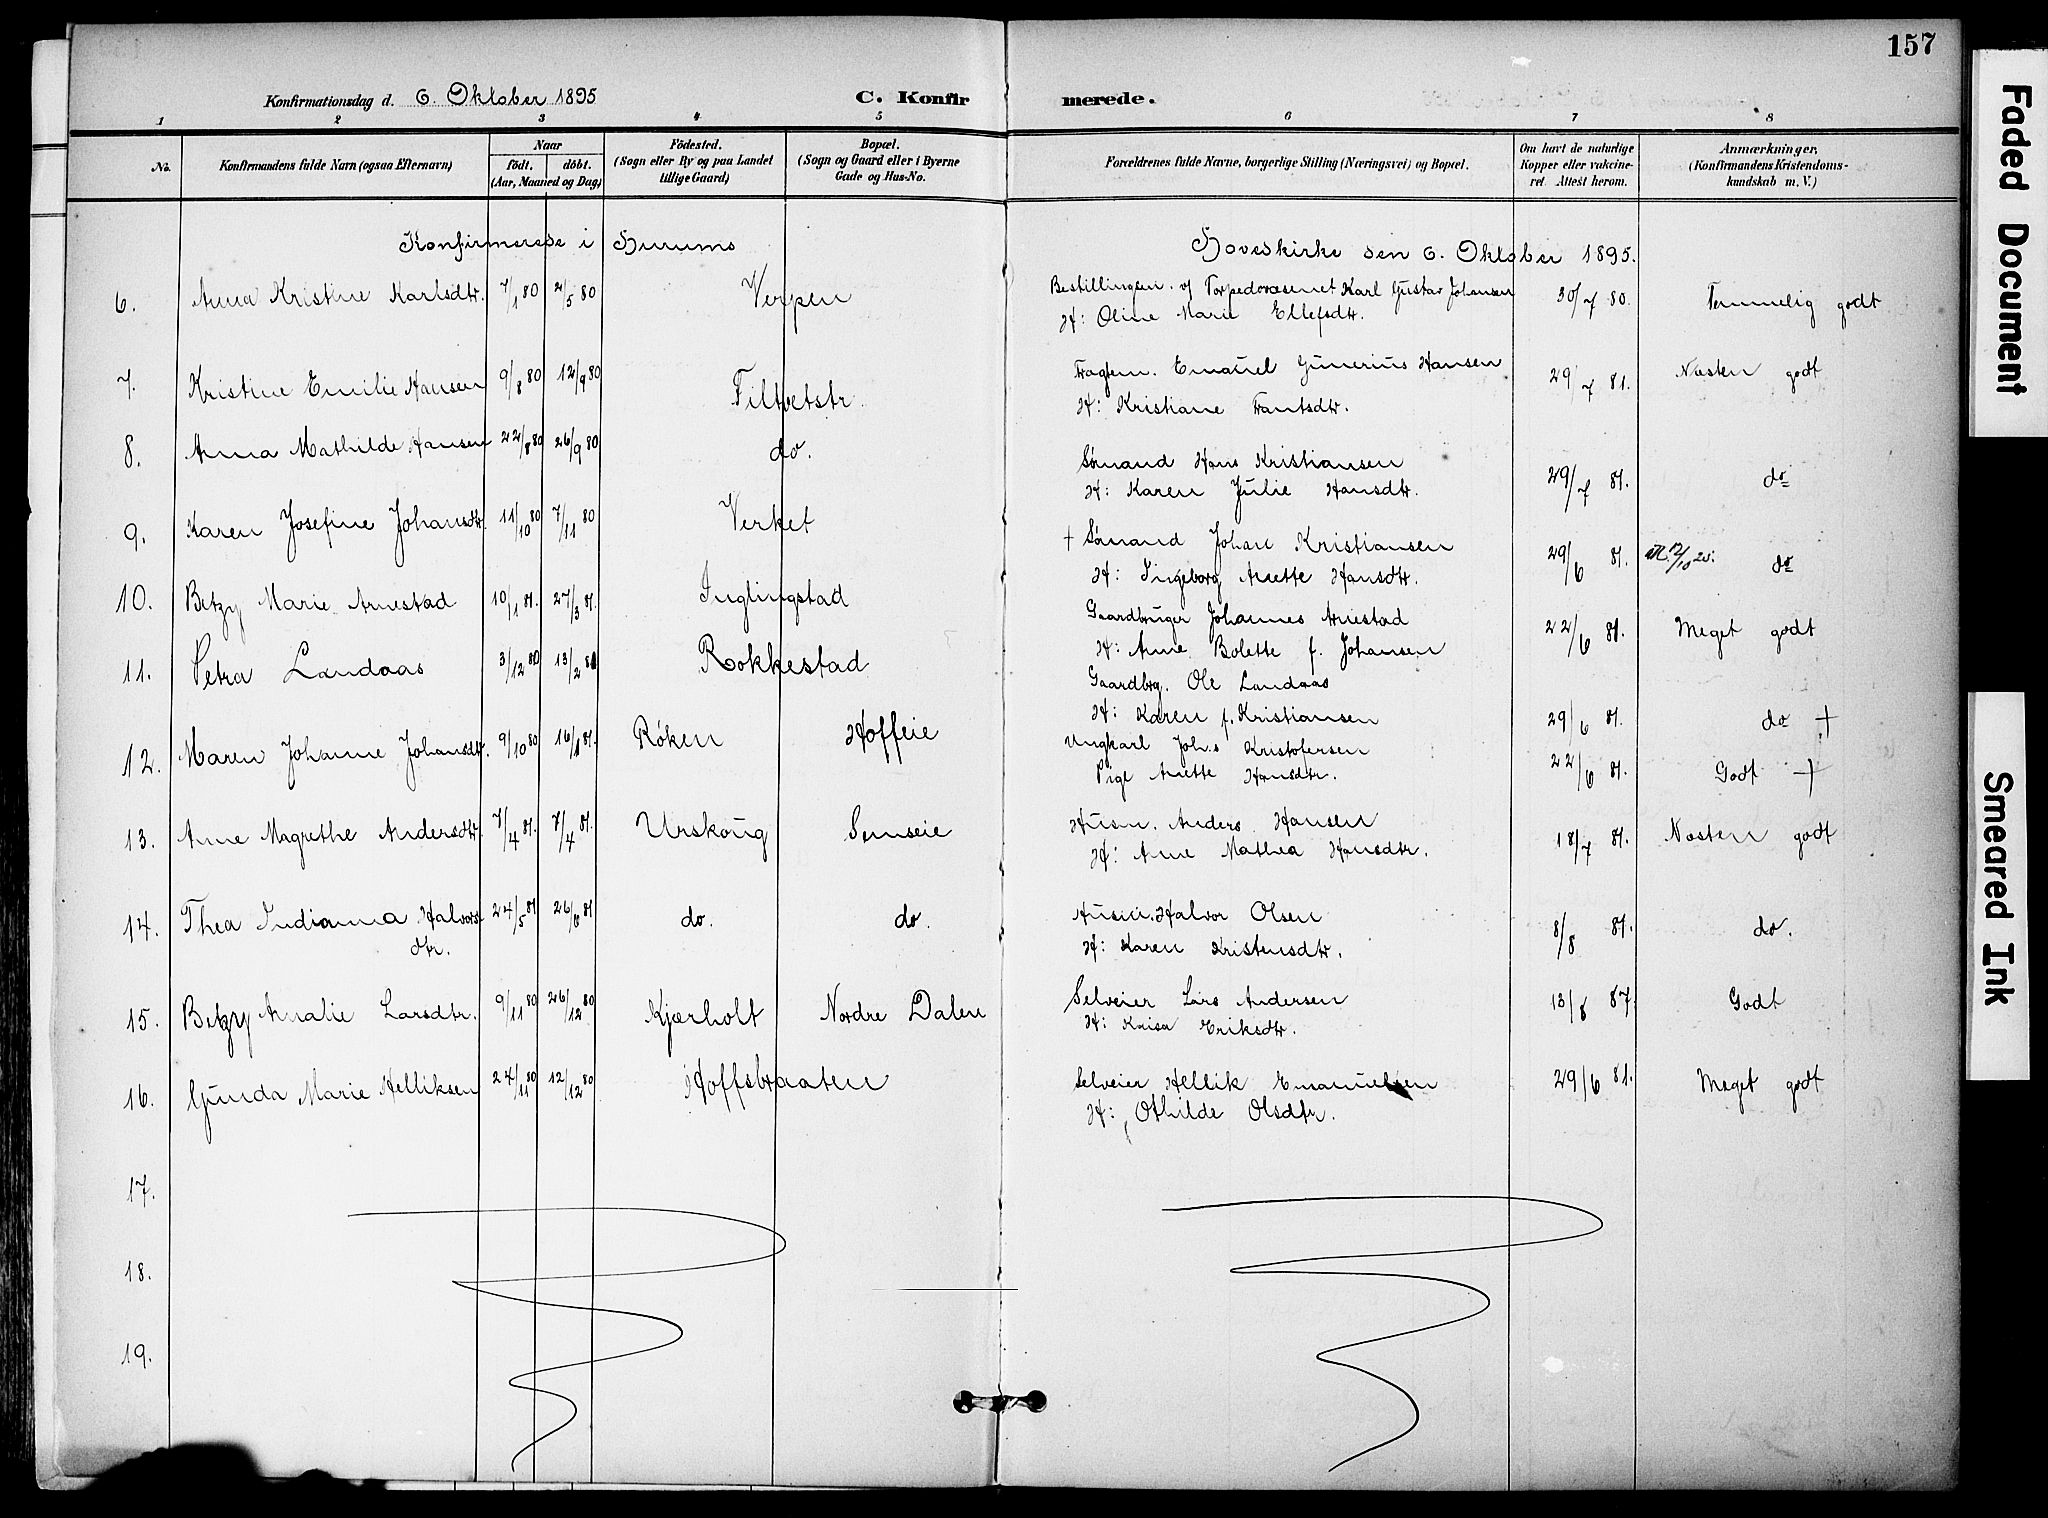 157
Konfirmationsdag d. 6. Oktober 1895 C. Konfirmerede.
1 2 3 4 5 6 7 8
No. Konfirmandens fulde Navn (ogsaa Efternavn) Naar födt. döbt. (Aar, Maaned og Dag) Födested. (Sogn eller By og paa Landet tillige Gaard) Bopæl. (Sogn og Gaard eller i Byerne Gade og Hus-No. Forældrenes fulde Navne, borgerlige Stilling (Næringsvei) og Bopæl. Om havt de naturlige Kopper eller vakcineret Attest herom. Anmærkninger, (Konfirmandens Kristendomskundskab m. V.)
Konfirmerede i Hurums Hovedkirke den 6. Oktober 1895.
6. Anna Kristine Karlsdtr. 7/1 80 2/5 80 Verpen Bestillingsm. v/ Torpedovæsenet Karl Gustav Johansen 30/7 80. Temmelig godt
H: Oline Marie Ellefsdtr.
7. Kristine Emilie Hansen 9/8 80 12/9 80 Filtvetstr. Fragtem. Emanuel Gunerius Hansen 29/7 81. Næsten godt
H: Kristiane Frantsdtr.
8. Anna Mathilde Hansen 22/8 80 26/9 80 do. Sømand Hans Kristiansen 29/7 81. do
H: Karen Julie Hansdtr.
9. Karen Josefine Johansdtr. 11/10 80 7/11 80 Verket † Sømand Johan Kristiansen 29/6 81. 12/10 25. do
H: Ingeborg Anette Hansdtr.
10. Betzy Marie Arnestad 10/1 81. 27/3 81. Inglingstad Gaardbruger Johannes Arnestad 22/6 81. Meget godt
H: Anne Bolette f. Johansen
11. Petra Landaas 3/12 80 13/2 81 Rokkestad Gaardbrg. Ole Landaas
H: Karen f. Kristiansen 29/6 81. do †
12. Maren Johanne Johansdtr. 9/10 80 16/1 81. Røken Hoffeie Ungkarl Johs Kristofersen
Pige Anette Hansdtr. 22/6 81. Godt †
13. Anne Magrethe Andersdtr. 7/4 81. 7/4 81. Urskoug Semseie Husm. Anders Hansen 18/7 81. Næsten godt
H: Anne Mathea Hansdtr.
14. Thea Indiana Halvorsdtr. 24/5 81 26/6 81 do. do. Husm. Halvor Olsen 8/8 81. do.
H: Karen Kristensdtr.
15. Betzy Amalie Larsdtr. 9/11 80 26/12 80 Kjærholt Nordre Dalen Selveier Lars Andersen 13/8 87. Godt
H: Krisa Eriksdtr.
16. Gunda Marie Helliksen 24/11 80 12/12 80 Hoffsbraaten Selveier Hellik Emanuelsen 29/6 81. Meget godt
H: Othilde Olsdtr.
17.
18.
19.
Faded Document
Smeared Ink